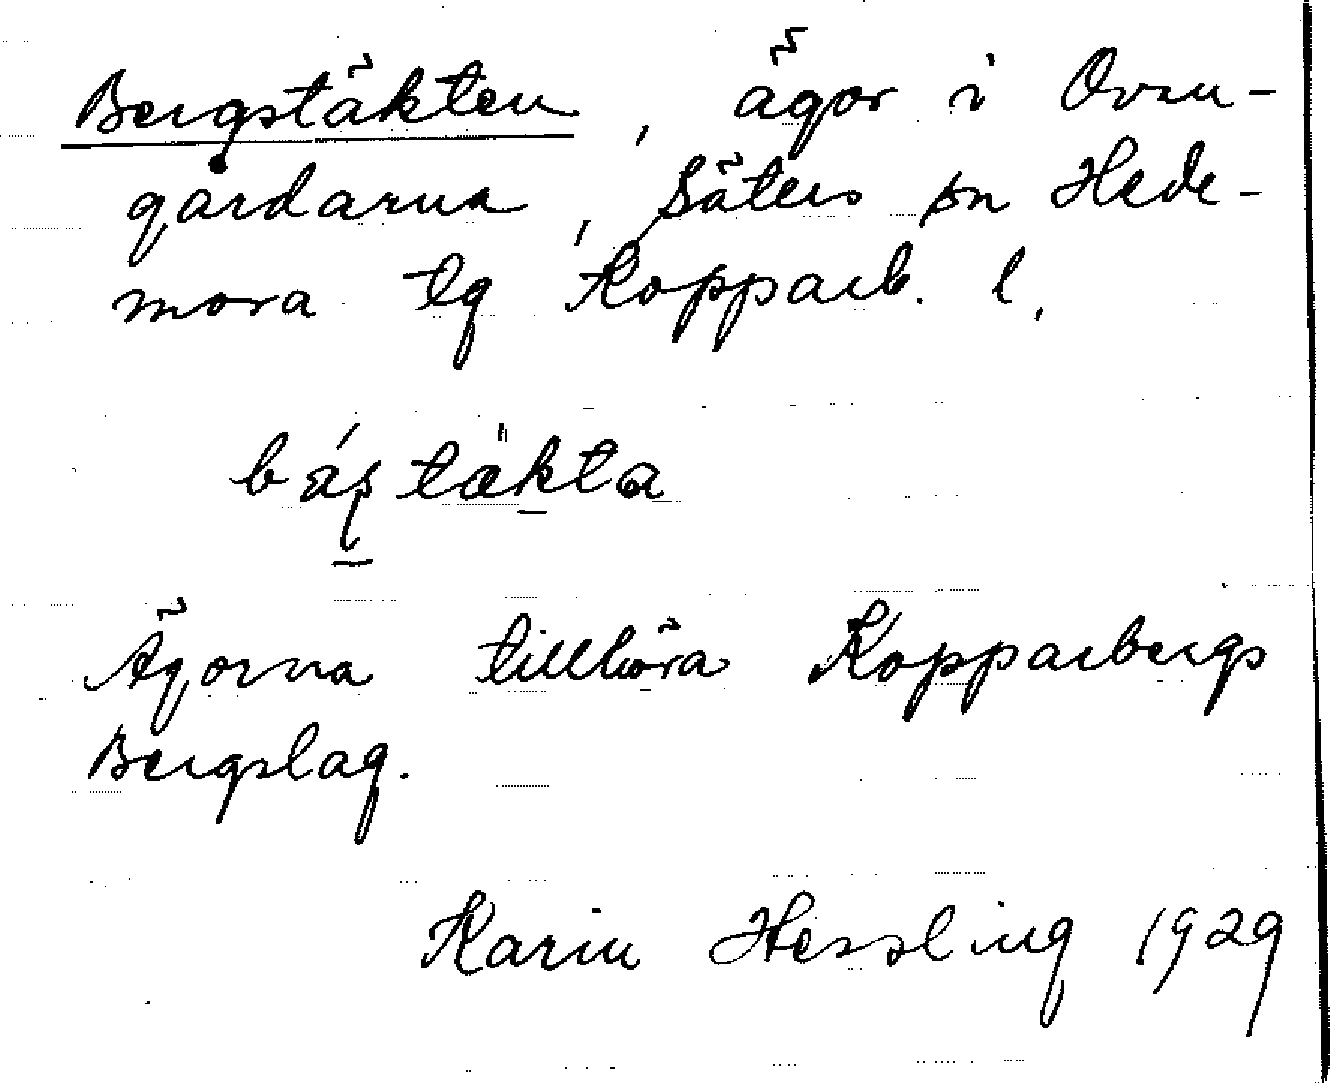 Bergstäkten, ägor i Ovan-
gårdarna, Säters sn Hede-
mora tg Kopparb. l.
báʂtäkta
Ägorna tillhöra Kopparbergs
Bergslag.
Karin Hessling 1929